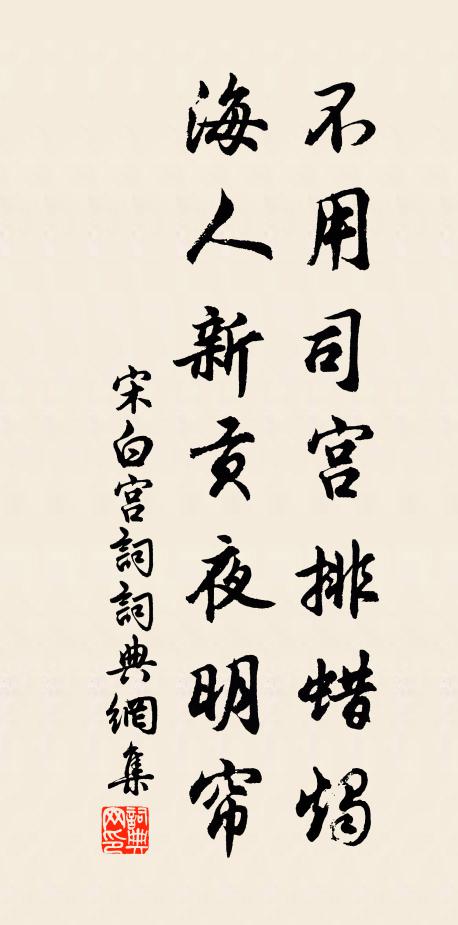 不用司宫排蜡燭
海人新贡夜明帘
宋白宫詞詞典網集
詞典网印